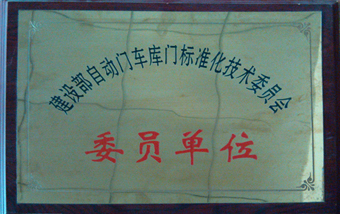 建设部自动门车库门标准化技术委员会
委员单位